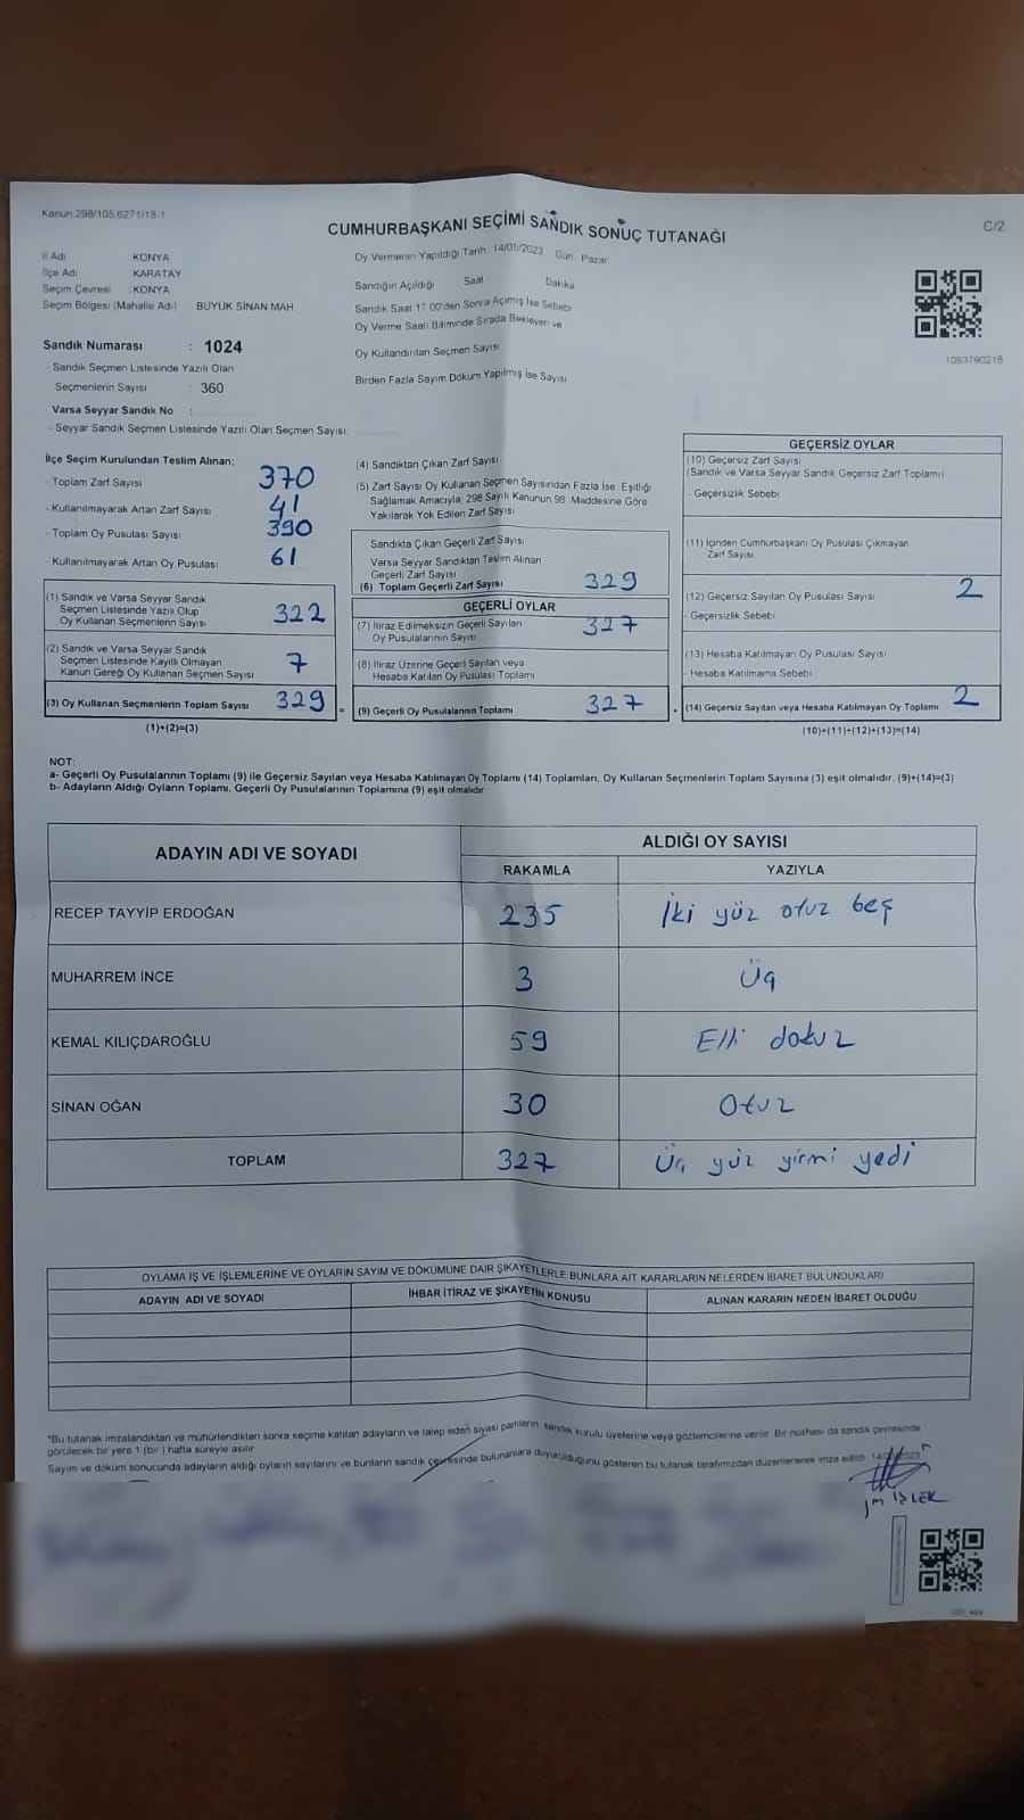 Kanun:298/105,6271/18-1
CUMHURBAŞKANI SEÇİMİ SANDIK SONUÇ TUTANAĞI
C/2
İl Adı KONYA
İlçe Adı KARATAY
Seçim Çevresi : KONYA
Seçim Bölgesi (Mahalle Adı) BÜYÜK SİNAN MAH
Oy Vermenin Yapıldığı Tarih: 14/05/2023 Gün: Pazar
Sandığın Açıldığı Saat Dakika
Sandık Saat 17:00'den Sonra Açılmış İse Sebebi
Oy Verme Saati Bitiminde Sırada Bekleyen ve
Oy Kullandırılan Seçmen Sayısı
Birden Fazla Sayım Döküm Yapılmış İse Sayısı
1093790218
Sandık Numarası : 1024
- Sandık Seçmen Listesinde Yazılı Olan
Seçmenlerin Sayısı : 360
- Varsa Seyyar Sandık No :
- Seyyar Sandık Seçmen Listesinde Yazılı Olan Seçmen Sayısı:
İlçe Seçim Kurulundan Teslim Alınan:
- Toplam Zarf Sayısı 370
- Kullanılmayarak Artan Zarf Sayısı 41
- Toplam Oy Pusulası Sayısı 390
- Kullanılmayarak Artan Oy Pusulası 61
(1) Sandık ve Varsa Seyyar Sandık
Seçmen Listesinde Yazılı Olup
Oy Kullanan Seçmenlerin Sayısı 322
(2) Sandık ve Varsa Seyyar Sandık
Seçmen Listesinde Kayıtlı Olmayan
Kanun Gereği Oy Kullanan Seçmen Sayısı 7
(3) Oy Kullanan Seçmenlerin Toplam Sayısı 329
(1)+(2)=(3)
(4) Sandıktan Çıkan Zarf Sayısı
(5) Zarf Sayısı Oy Kullanan Seçmen Sayısından Fazla İse, Eşitliği
Sağlamak Amacıyla, 298 Sayılı Kanunun 98. Maddesine Göre
Yakılarak Yok Edilen Zarf Sayısı
Sandıkta Çıkan Geçerli Zarf Sayısı
Varsa Seyyar Sandıktan Teslim Alınan
Geçerli Zarf Sayısı
(6) Toplam Geçerli Zarf Sayısı 329
GEÇERLİ OYLAR
(7) İtiraz Edilmeksizin Geçerli Sayılan
Oy Pusulalarının Sayısı 327
(8) İtiraz Üzerine Geçerli Sayılan veya
Hesaba Katılan Oy Pusulası Toplamı
(9) Geçerli Oy Pusulalarının Toplamı 327
GEÇERSİZ OYLAR
(10) Geçersiz Zarf Sayısı
(Sandık ve Varsa Seyyar Sandık Geçersiz Zarf Toplamı)
- Geçersizlik Sebebi
(11) İçinden Cumhurbaşkanı Oy Pusulası Çıkmayan
Zarf Sayısı
(12) Geçersiz Sayılan Oy Pusulası Sayısı 2
- Geçersizlik Sebebi
(13) Hesaba Katılmayan Oy Pusulası Sayısı
- Hesaba Katılmama Sebebi
(14) Geçersiz Sayılan veya Hesaba Katılmayan Oy Toplamı 2
(10)+(11)+(12)+(13)=(14)
NOT:
a- Geçerli Oy Pusulalarının Toplamı (9) ile Geçersiz Sayılan veya Hesaba Katılmayan Oy Toplamı (14) Toplamları, Oy Kullanan Seçmenlerin Toplam Sayısına (3) eşit olmalıdır. (9)+(14)=(3)
b- Adayların Aldığı Oyların Toplamı, Geçerli Oy Pusulalarının Toplamına (9) eşit olmalıdır
ADAYIN ADI VE SOYADI
ALDIĞI OY SAYISI
RAKAMLA YAZIYLA
RECEP TAYYİP ERDOĞAN 235 İki yüz otuz beş
MUHARREM İNCE 3 Üç
KEMAL KILIÇDAROĞLU 59 Elli dokuz
SİNAN OĞAN 30 Otuz
TOPLAM 327 Üç yüz yirmi yedi
OYLAMA İŞ VE İŞLEMLERİNE VE OYLARIN SAYIM VE DÖKÜMÜNE DAİR ŞİKAYETLERLE BUNLARA AİT KARARLARIN NELERDEN İBARET BULUNDUKLARI
ADAYIN ADI VE SOYADI İHBAR İTİRAZ VE ŞİKAYETİN KONUSU ALINAN KARARIN NEDEN İBARET OLDUĞU
*Bu tutanak imzalandıktan ve mühürlendikten sonra seçime katılan adayların ve talep eden siyasi partilerin, sandık kurulu üyelerine veya gözlemcilerine verilir. Bir nüshası da sandık çevresinde
görülecek bir yere 1 (bir) hafta süreyle asılır
Sayım ve döküm sonucunda adayların aldığı oyların sayılarını ve bunların sandık çevresinde bulunanlara duyurulduğunu gösteren bu tutanak tarafımızdan düzenlenerek imza edildi.